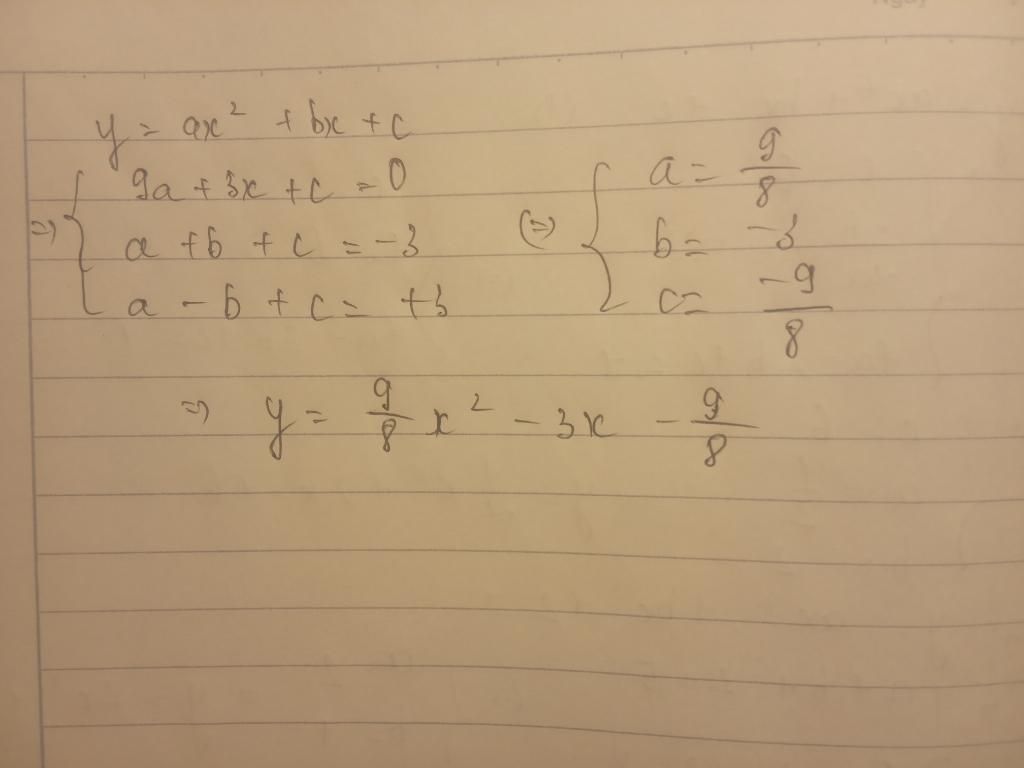 y = ax² + bx + c
=> { 9a + 3x + c = 0
a + b + c = -3
a - b + c = +3
(=) { a = 9/8
b = -3
c = -9/8
=> y = 9/8 x² - 3x - 9/8